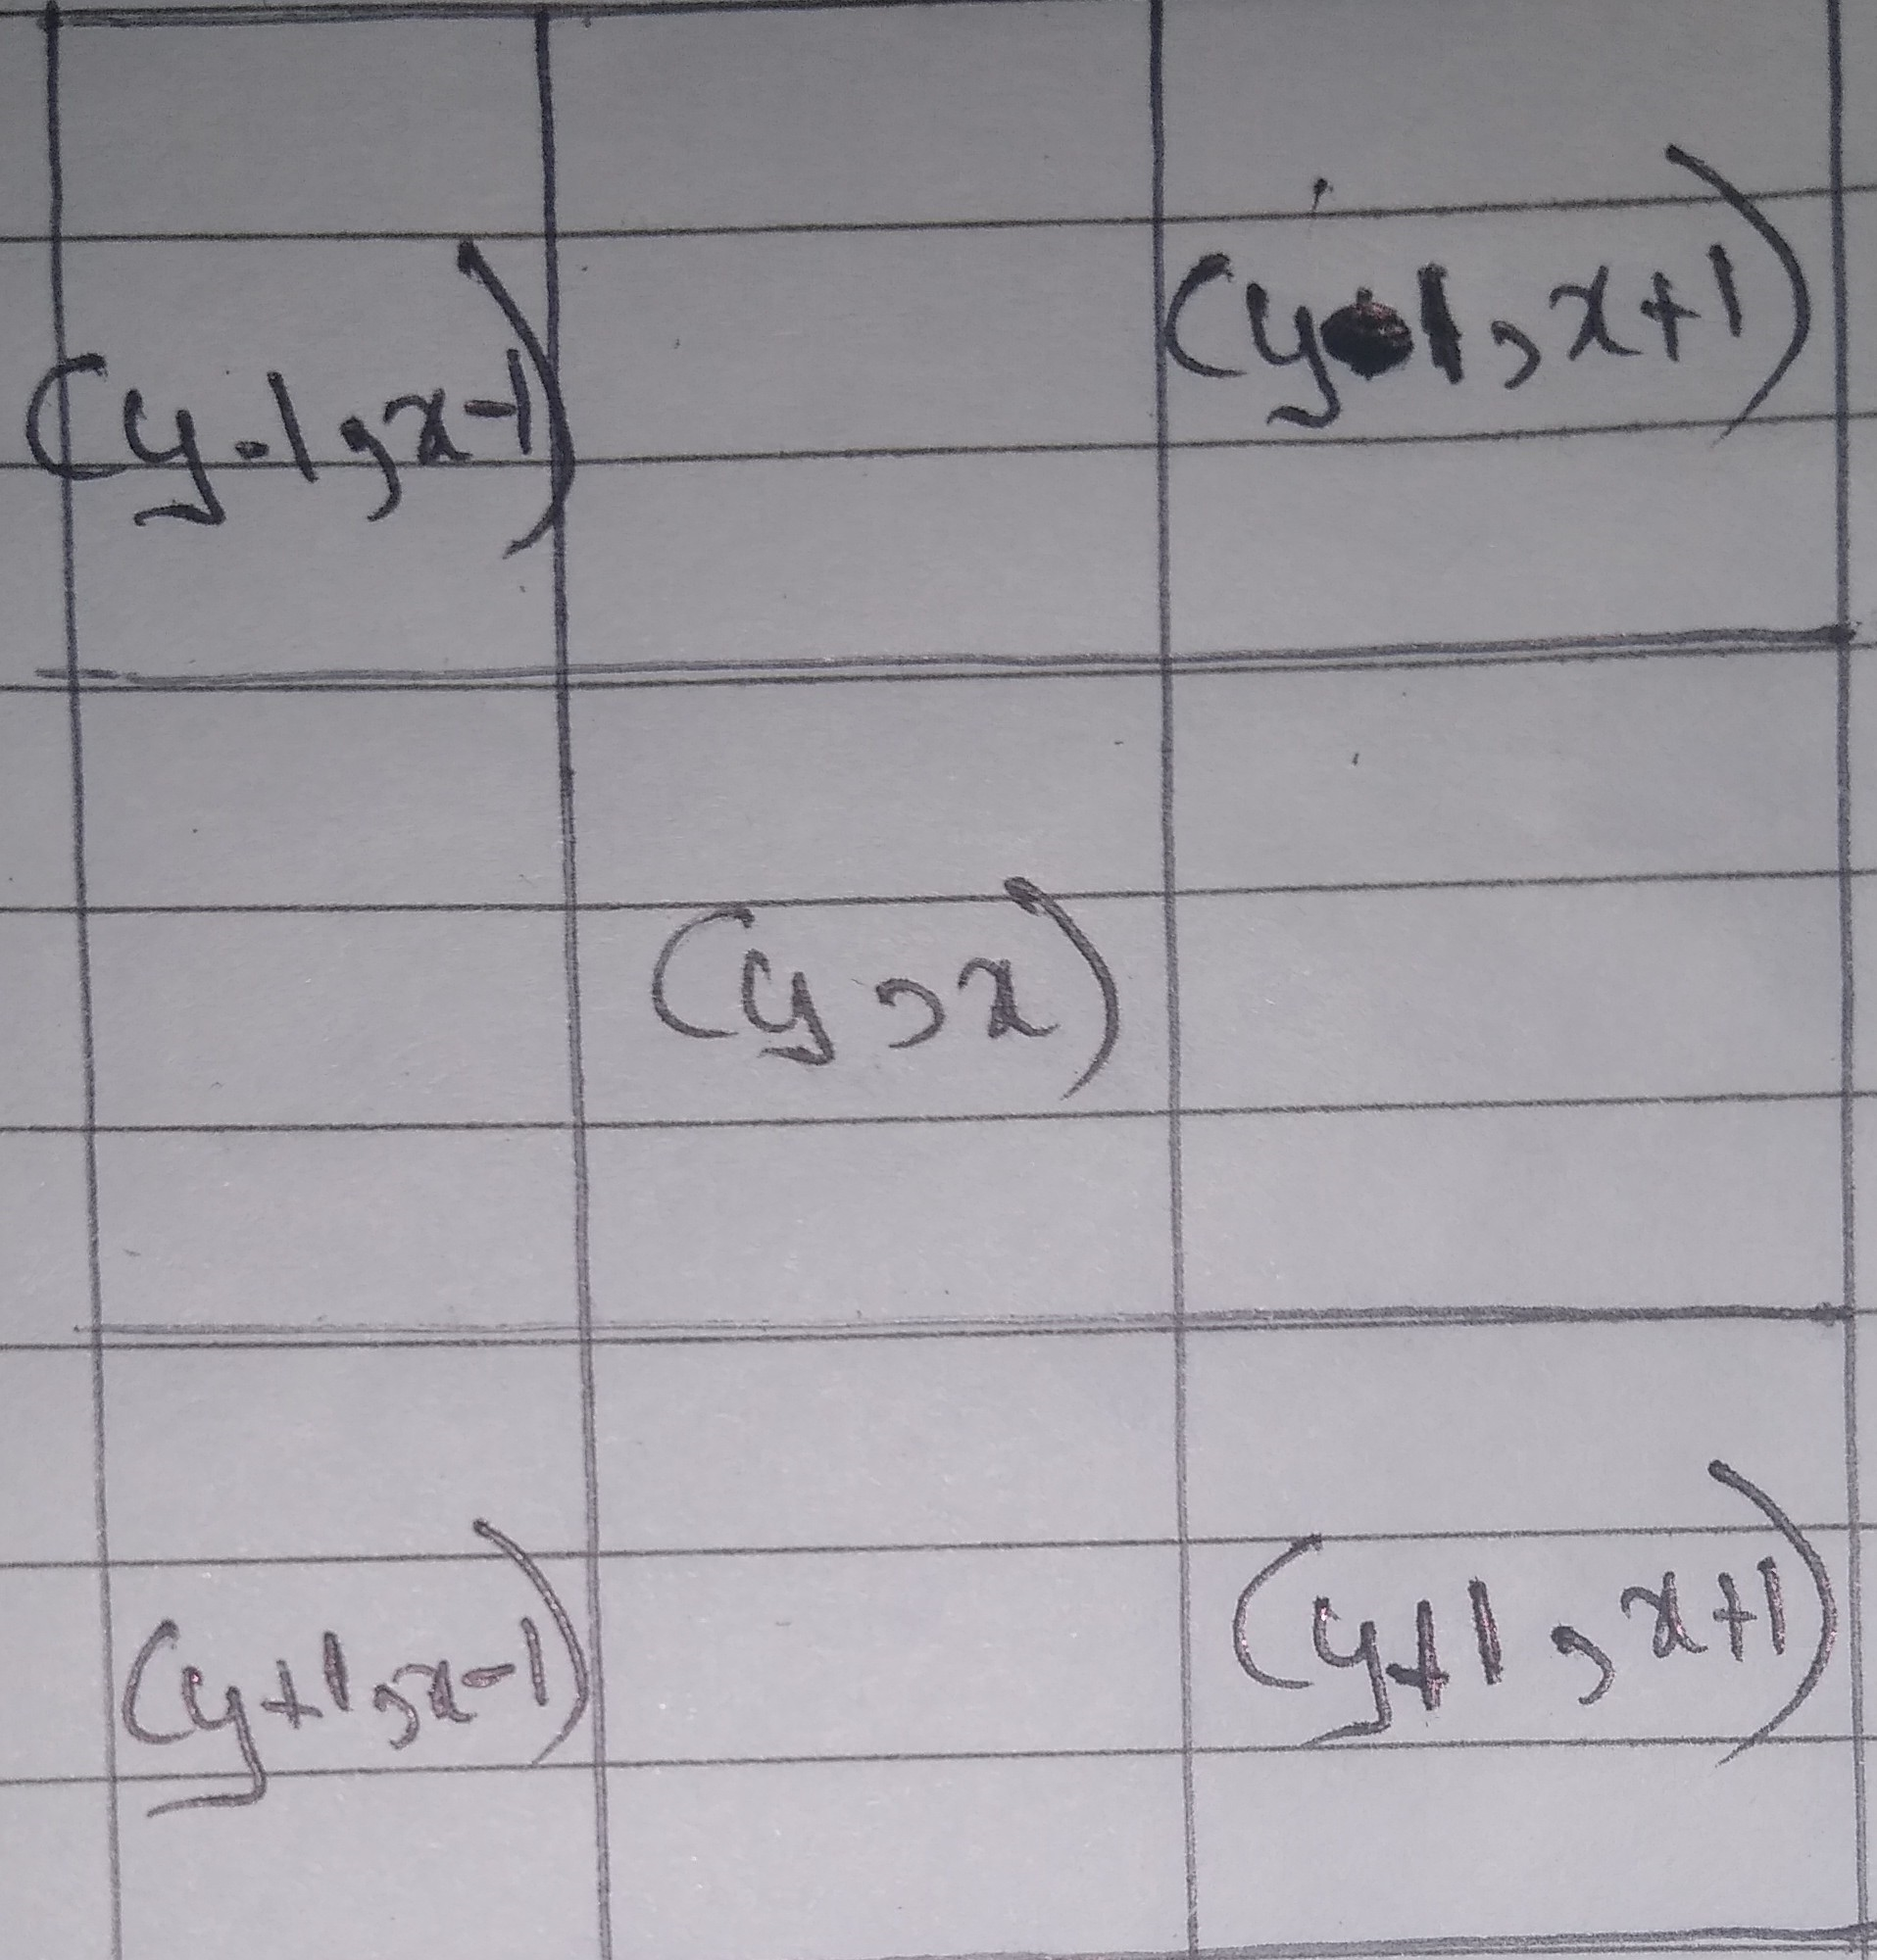 (y-1,x-1)
(y-1,x+1)
(y,x)
(y+1,x-1)
(y+1,x+1)